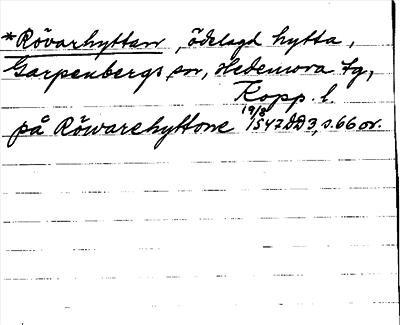 *Rövarhyttan, ödelagd hytta,
Garpenbergs sn, Hedemora tg,
Kopp. l.
på Röwarehyttone 19/8 1547 DD3, s. 66 or.